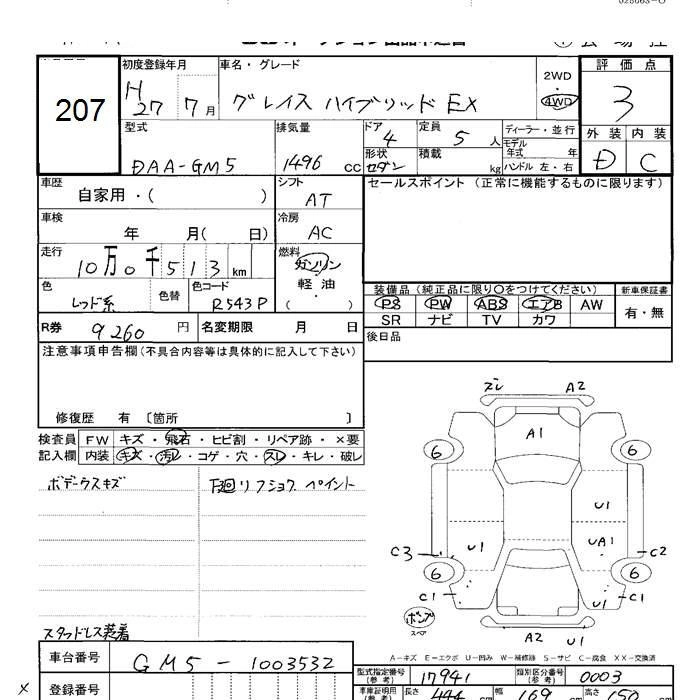 028063-0
オークション出品申込書
会場控
207
初度登録年月 車名・グレード 2WD 評価点
H 27 7月 グレイス ハイブリッド EX 4WD 3
型式 排気量 ドア 定員 ディーラー・並行 外装 内装
DAA-GM5 1496 cc 4 5 人 モデル年式 年 D C
形状 積載 kg ハンドル 左・右
セダン
車歴 シフト セールスポイント (正常に機能するものに限ります)
自家用・( ) AT
車検 冷房
年 月( 日) AC
走行 燃料
10万0千513 km ガソリン
軽・油
( )
色 色替 色コード 装備品 (純正品に限り○をつけてください) 新車保証書
レッド系 R543P PS PW ABS エアB AW 有・無
SR ナビ TV カワ
R券 9260 円 名変期限 月 日 後日品
注意事項申告欄(不具合内容等は具体的に記入して下さい)
修復歴 有 〔箇所 〕
検査員 FW キズ・飛石・ヒビ割・リペア跡・×要
記入欄 内装 キズ・汚レ・コゲ・穴・スレ・キレ・破レ
ボデークスキズ 下廻リフショク ペイント
ズレ A2
A1
6 6
U1
U1 UA1
C3 C2
6 6
C1 U1 C1
ポンプ
スペア
A2 U1
スタッドレス装着
A-キズ E-エクボ U-凹み W-補修跡 S-サビ C-腐食 XX-交換済
車台番号 GM5-1003532
型式指定番号(参考) 17941 類別区分番号(参考) 0003
登録番号
車庫証明用(参考) 長さ 444 cm 幅 169 cm 高さ 150 cm
×